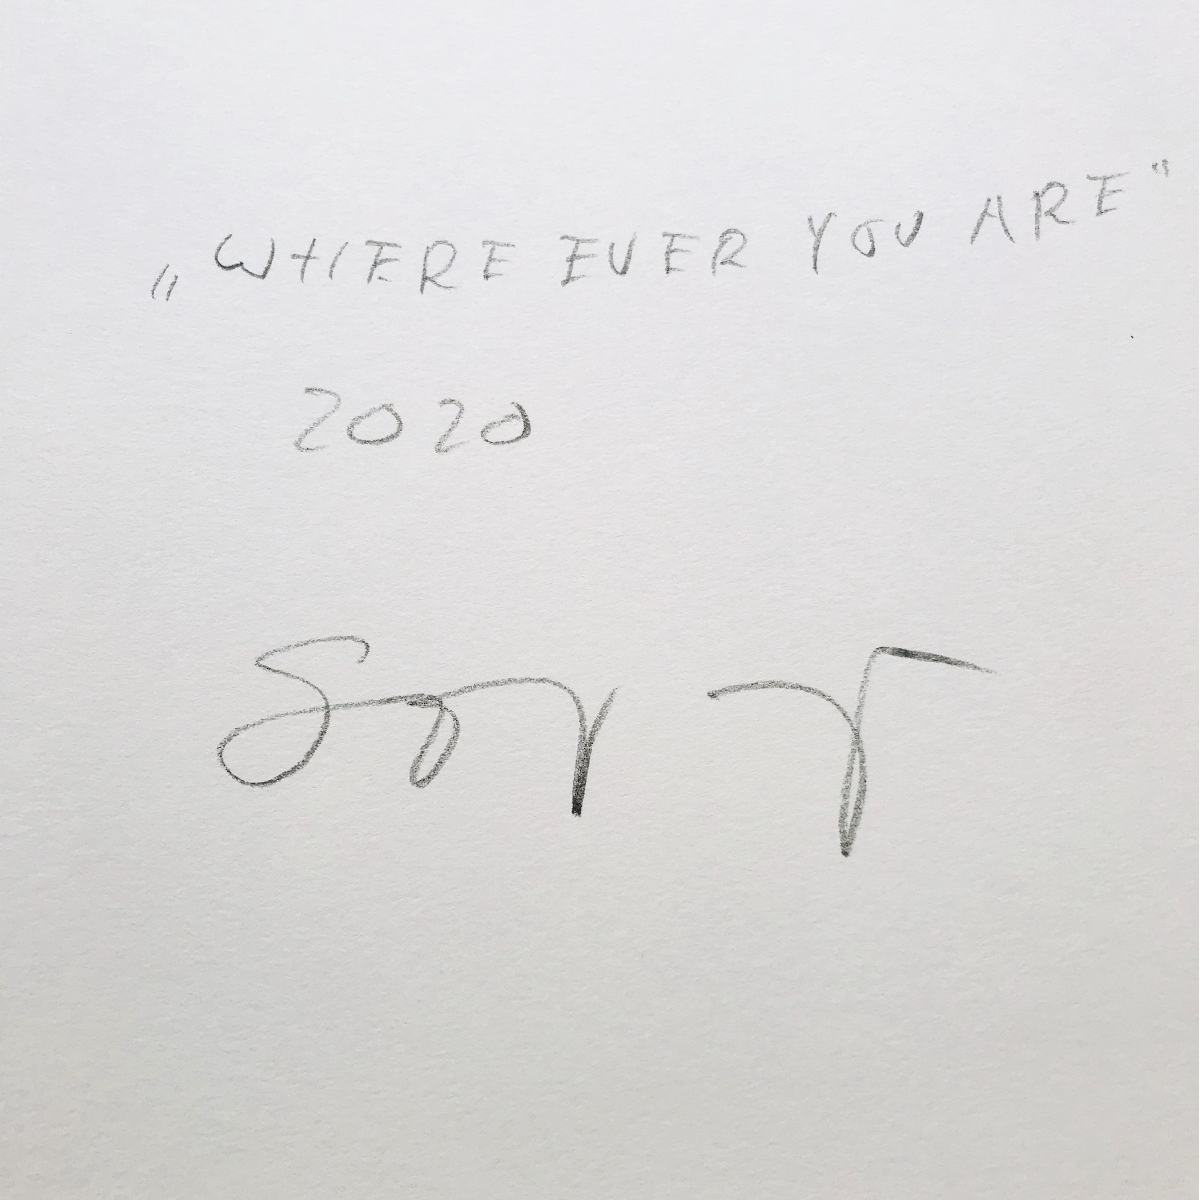 „WHERE EVER YOU ARE"
2020